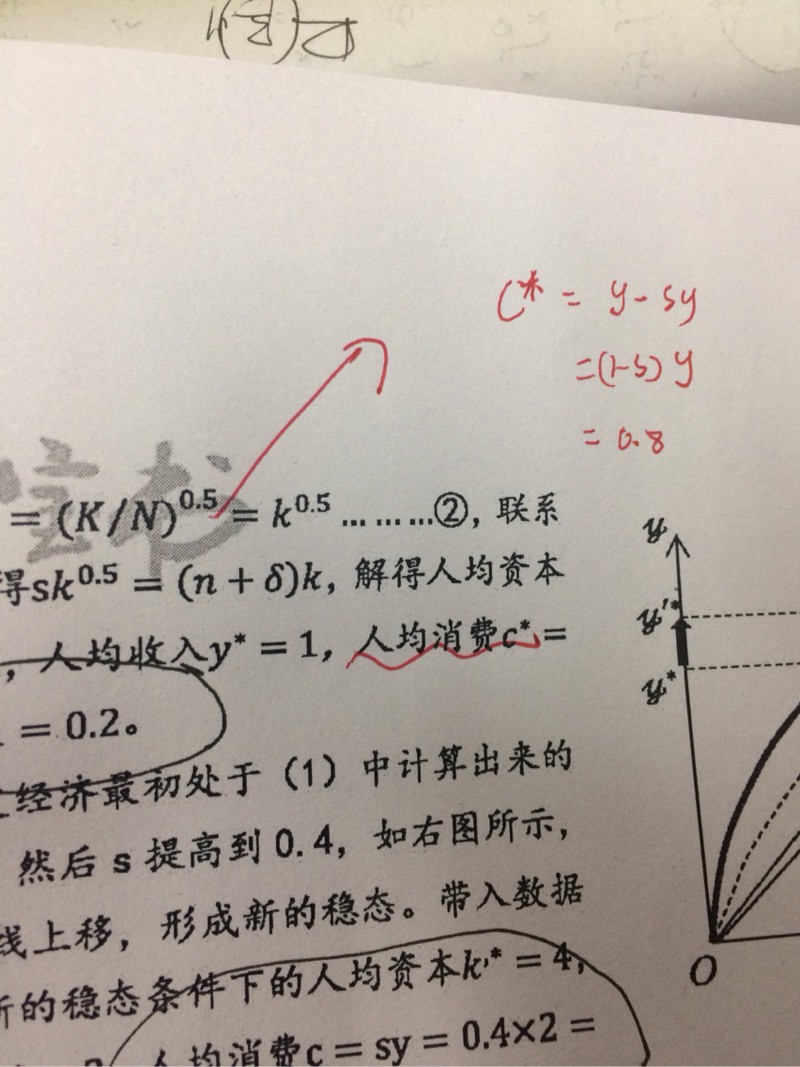 C* = y - sy
= (1-s) y
= 0.8
= (K/N)^0.5 = k^0.5 ………②, 联系
得sk^0.5 = (n + δ)k, 解得人均资本
, 人均收入y* = 1, 人均消费c* =
= 0.2。
经济最初处于（1）中计算出来的
然后 s 提高到 0.4, 如右图所示,
线上移, 形成新的稳态。带入数据
新的稳态条件下的人均资本k'* = 4,
人均消费c = sy = 0.4×2 =
y
y'*
y*
O